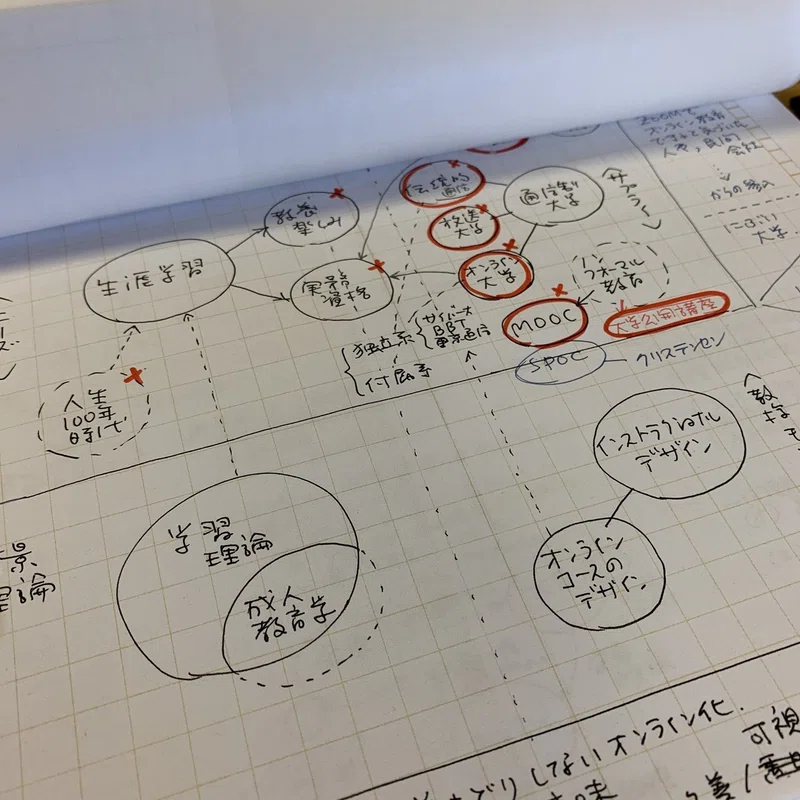 ZOOMで
オンライン教育
会社
からの参入
にぶい
大学.
伝統的
通信
通信制
大学
サプライ
放送
大学
オンライン
大学
ノン
フォーマル
教育
教養
楽しみ
生涯学習
実務
MOOC
大学公開講座
SPOC
クリステンセン
独立系
付属系
サイバー
BBT
東京通信
人生
100年
時代
ニーズ
インストラクショナル
デザイン
オンライン
コースの
デザイン
学習
理論
成人
教育学
景
理論
しないオンライン化.
可視